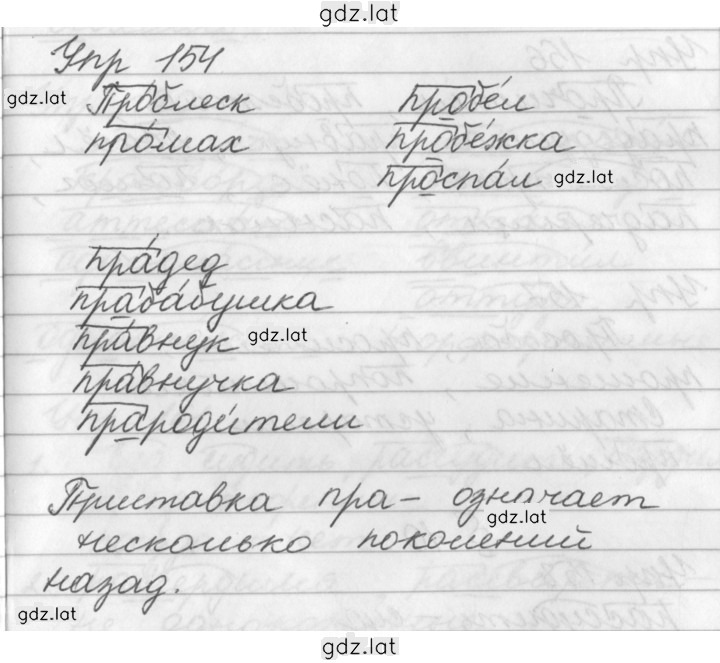 gdz.lat
Упр 154
gdz.lat
Про́блеск пробе́л
про́мах пробе́жка
проспа́л gdz.lat
пра́дед
праба́бушка
пра́внук gdz.lat
пра́внучка
прароди́тели
Приставка пра- означает
gdz.lat
несколько поколений
назад.
gdz.lat
gdz.lat